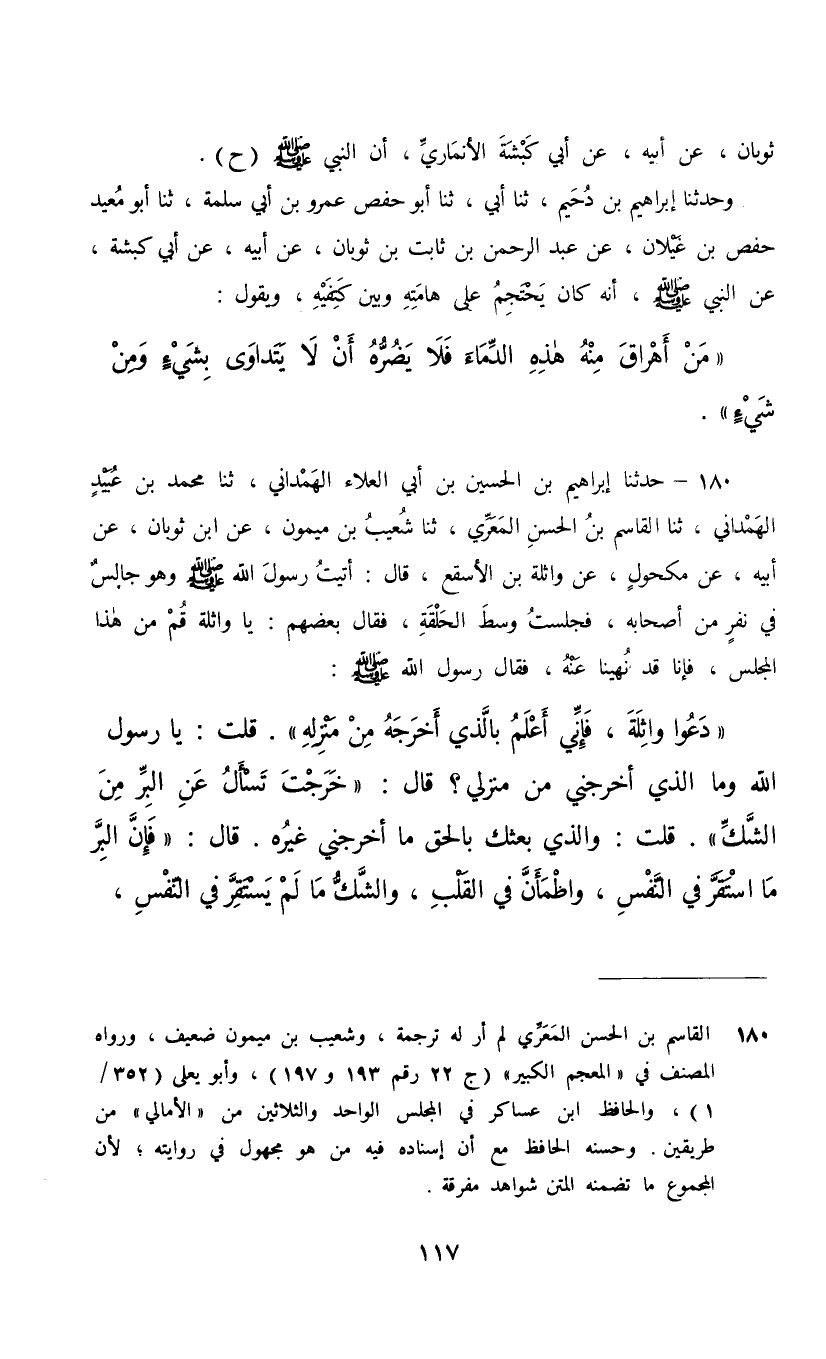 ثوبان ، عن أبيه ، عن أبي كَبْشَةَ الأنمَاريِّ ، أن النبي ﷺ (ح) .
وحدثنا إبراهيم بن دُحَيم ، ثنا أبي ، ثنا أبو حفص عمرو بن أبي سلمة ، ثنا أبو مُعيد
حفص بن غَيْلان ، عن عبد الرحمن بن ثابت بن ثوبان ، عن أبيه ، عن أبي كبشة ،
عن النبي ﷺ ، أنه كان يَحْتَجِمُ على هامَتِهِ وبين كَتِفَيْهِ ، ويقول :
« مَنْ أَهْراقَ مِنْهُ هٰذِهِ الدِّمَاءَ فَلَا يَضُرُّهُ أَنْ لَا يَتَداوَى بِشَيْءٍ وَمِنْ
شَيْءٍ» .
١٨٠ – حدثنا إبراهيم بن الحسين بن أبي العلاء الهَمْداني ، ثنا محمد بن عُبَيْدٍ
الهَمْداني ، ثنا القاسم بنُ الحسنِ المَعَرِّي ، ثنا شُعيبُ بن ميمون ، عن ابن ثوبان ، عن
أبيه ، عن مكحولٍ ، عن واثلة بن الأسقع ، قال : أتيتُ رسولَ الله ﷺ وهو جالِسٌ
في نفرٍ من أصحابه ، فجلستُ وسطَ الحَلْقَةِ ، فقال بعضهم : يا واثلة قُمْ من هٰذا
المجلس ، فإنا قد نُهينا عَنْهُ ، فقال رسول الله ﷺ :
« دَعُوا واثِلَةَ ، فَإِنِّي أَعْلَمُ بالَّذي أَخرَجَهُ مِنْ مَنْزِلِهِ» . قلت : يا رسول
الله وما الذي أخرجني من منزلي؟ قال : «خَرَجْتَ تَسْأَلُ عَنِ البِرِّ مِنَ
الشَّكِّ» . قلت : والذي بعثك بالحق ما أخرجني غيرُه . قال : «فَإِنَّ البِرَّ
مَا اسْتُقَرَّ في النَّفْسِ ، واطْمَأَنَّ في القَلْبِ ، والشَّكُّ مَا لَمْ يَسْتَقِرَّ في النَّفْسِ ،
١٨٠ القاسم بن الحسن المَعَرِّي لم أر له ترجمة ، وشعيب بن ميمون ضعيف ، ورواه
المصنف في «المعجم الكبير» (ج ٢٢ رقم ١٩٣ و١٩٧) ، وأبو يعلى (٣٥٢/
١) ، والحافظ ابن عساكر في المجلس الواحد والثلاثين من «الأمالي» من
طريقين . وحسنه الحافظ مع أن إسناده فيه من هو مجهول في روايته ؛ لأن
المجموع ما تضمنه المتن شواهد مفرقة .
١١٧